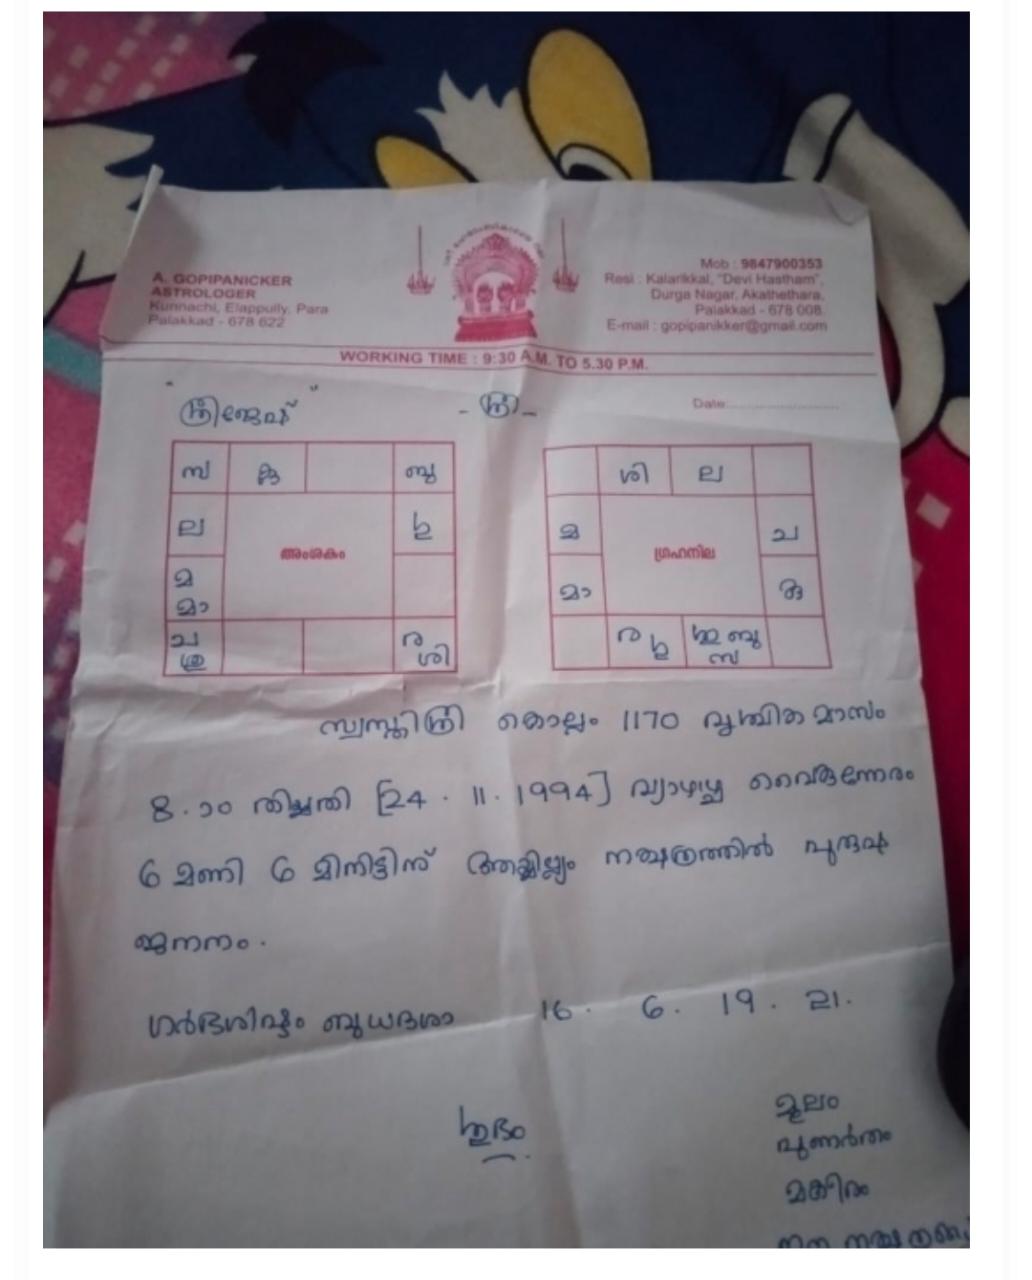 A. GOPIPANICKER
ASTROLOGER
Kunnachi, Elappully, Para
Palakkad - 678 622
Mob : 9847900353
Resi : Kalarikkal, "Devi Hastham",
Durga Nagar, Akathethara,
Palakkad - 678 008.
E-mail : gopipanikker@gmail.com
WORKING TIME : 9:30 A.M. TO 5.30 P.M.
"ശ്രീജേഷ്" - ശ്രീ -
Date:
സ കു ബു
ല ഗു
അംശകം
മ
മാ
ച
ശു
ര
ശി
ശി ല
മ ച
ഗ്രഹനില
മാ
ര ഗു
ബു
സ
സ്വസ്തിശ്രീ കൊല്ലം 1170 വൃശ്ചിക മാസം
8.ാം തിയ്യതി [24 . 11 . 1994] വ്യാഴാഴ്ച വൈകുന്നേരം
6 മണി 6 മിനിട്ടിന് ആയില്ല്യം നക്ഷത്രത്തിൽ പുരുഷ
ജനനം.
ഗർഭശിഷ്ടം ബുധദശാ 16 . 6 . 19 . 21.
ശുഭം
മൂലം
പുണർതം
മകീരം